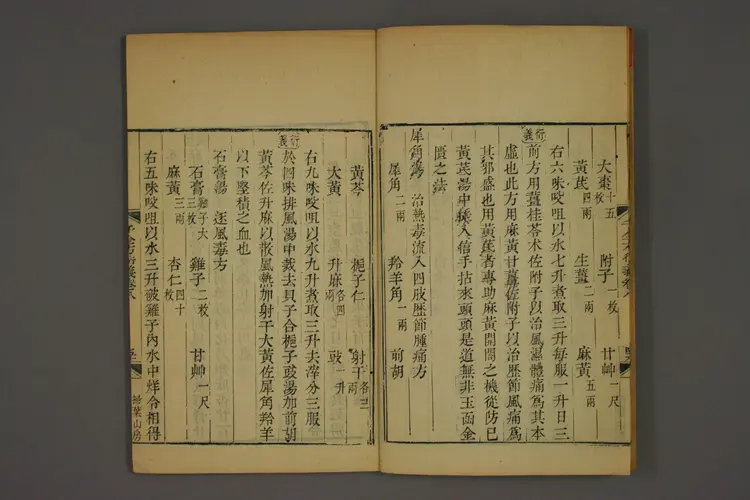 大棗十五枚 附子一枚 甘艸一尺
黃芪四兩 生薑二兩 麻黃五兩
右六味㕮咀以水七升煮取三升每服一升日三
衍義
前方用薑桂苓朮佐附子以治風濕體痛爲其本
虛也此方用麻黃甘薑佐附子以治歷節風痛爲
其邪盛也用黃芪者專助麻黃開闔之機從防已
黃芪湯中悟入信手拈來頭頭是道無非玉函金
匱之法
犀角湯 治熱毒流入四肢歷節腫痛方
犀角二兩 羚羊角一兩 前胡
黃芩 梔子仁 射干各三兩
大黃 升麻各四兩 豉一升
右九味㕮咀以水九升煮取三升去滓分三服
衍義
於四味排風湯中裁去貝子合梔子豉湯加前胡
黃芩佐升麻以散風熱加射干大黃佐犀角羚羊
以下堅積之血也
石膏湯 逐風毒方
石膏雞子大三枚 雞子二枚 甘艸一尺
麻黃三兩 杏仁四十枚
右五味㕮咀以水三升破雞子內水中烊令相得
掃葉山房